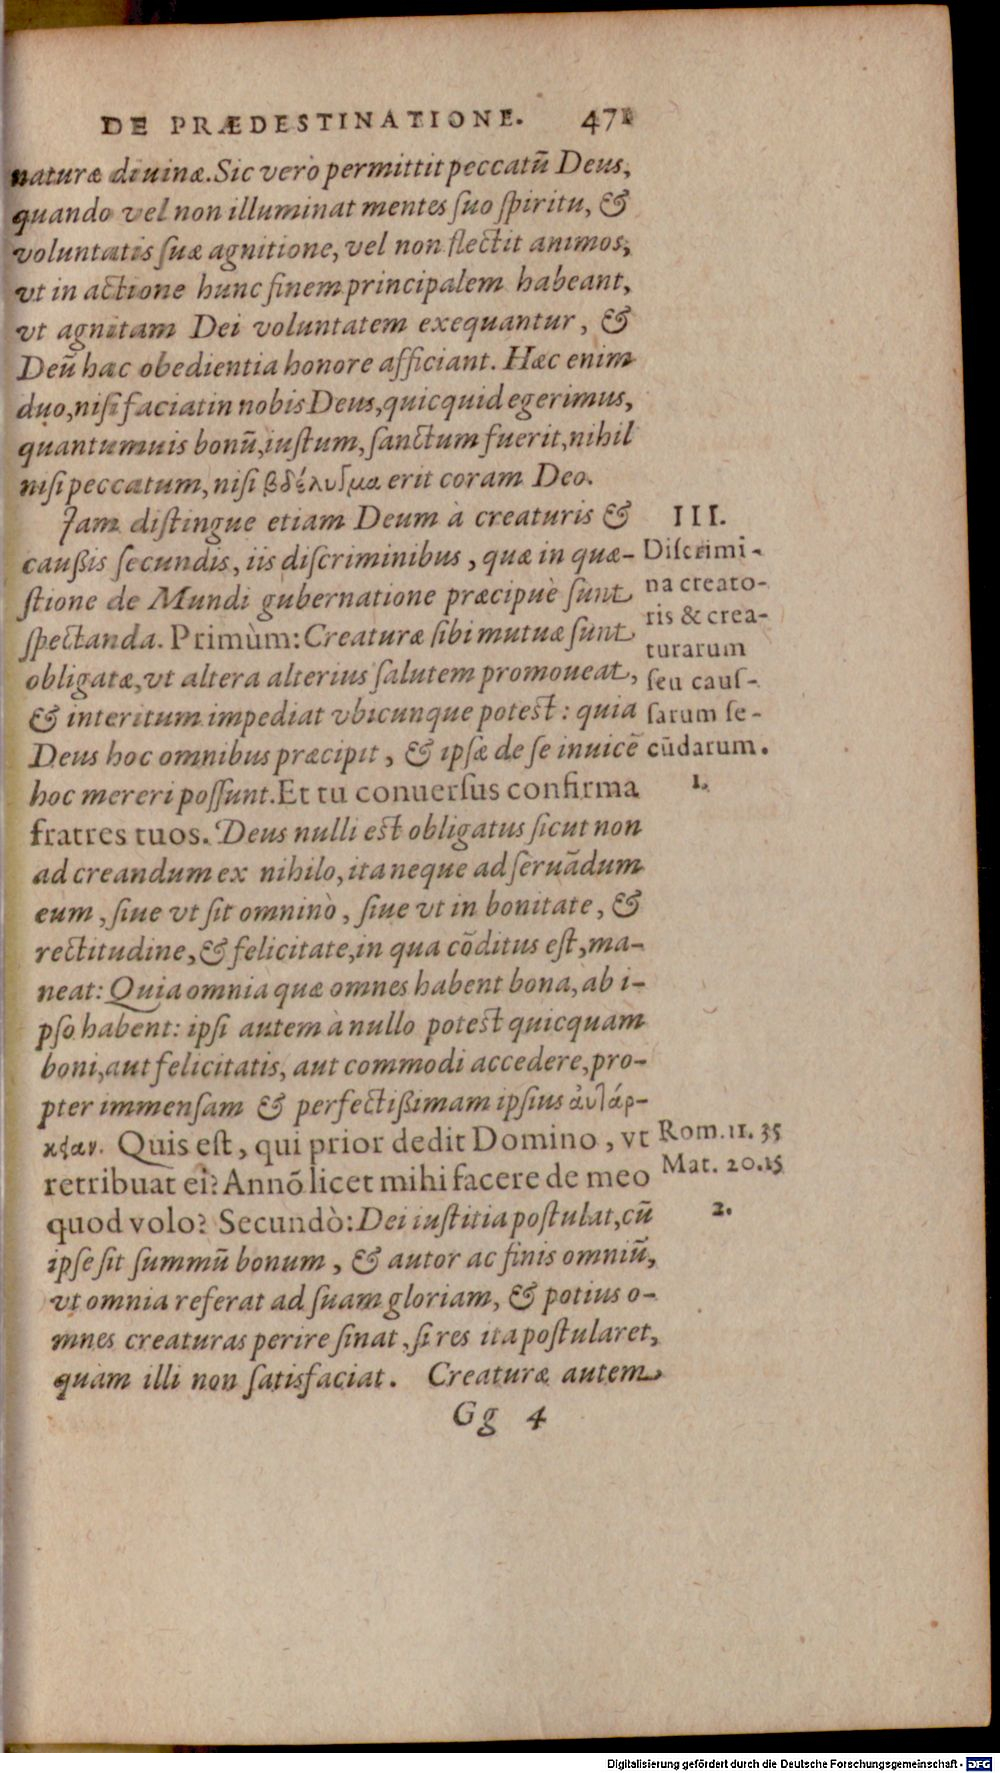 DE PRÆDESTINATIONE. 471
naturæ diuinæ. Sic verò permittit peccatū Deus,
quando vel non illuminat mentes ſuo ſpiritu, &
voluntatis ſuæ agnitione, vel non flectit animos,
vt in actione hunc finem principalem habeant,
vt agnitam Dei voluntatem exequantur, &
Deū hac obedientia honore afficiant. Hæc enim
duo, niſi faciat in nobis Deus, quicquid egerimus,
quantumuis bonū, iuſtum, ſanctum fuerit, nihil
niſi peccatum, niſi βδέλυγμα erit coram Deo.
Jam diſtingue etiam Deum à creaturis &
cauſsis ſecundis, iis diſcriminibus, quæ in quæ-
ſtione de Mundi gubernatione præcipuè ſunt
ſpectanda. Primùm: Creaturæ ſibi mutuæ ſunt
obligatæ, vt altera alterius ſalutem promoueat,
& interitum impediat vbicunque poteſt: quia
Deus hoc omnibus præcipit, & ipſæ de ſe inuicē
hoc mereri poſſunt. Et tu conuerſus confirma
fratres tuos. Deus nulli eſt obligatus ſicut non
ad creandum ex nihilo, ita neque ad ſeruādum
eum, ſiue vt ſit omninò, ſiue vt in bonitate, &
rectitudine, & felicitate, in qua cōditus eſt, ma-
neat: Quia omnia quæ omnes habent bona, ab i-
pſo habent: ipſi autem à nullo poteſt quicquam
boni, aut felicitatis, aut commodi accedere, pro-
pter immenſam & perfectiſsimam ipſius αὐτάρ-
κειαν. Quis eſt, qui prior dedit Domino, vt
retribuat ei? Annō licet mihi facere de meo
quod volo? Secundò: Dei iuſtitia poſtulat, cū
ipſe ſit ſummū bonum, & autor ac finis omniū,
vt omnia referat ad ſuam gloriam, & potius o-
mnes creaturas perire ſinat, ſi res ita poſtularet,
quàm illi non ſatisfaciat. Creaturæ autem
Gg 4
III.
Diſcrimi-
na creato-
ris & crea-
turarum
ſeu cauſ-
ſarum ſe-
cūdarum.
1.
Rom. 11. 35
Mat. 20. 15
2.
Digitalisierung gefördert durch die Deutsche Forschungsgemeinschaft - DFG